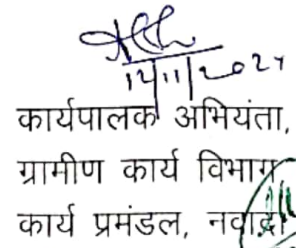 12/11/2024
कार्यपालक अभियंता,
ग्रामीण कार्य विभाग
कार्य प्रमंडल, नवादा